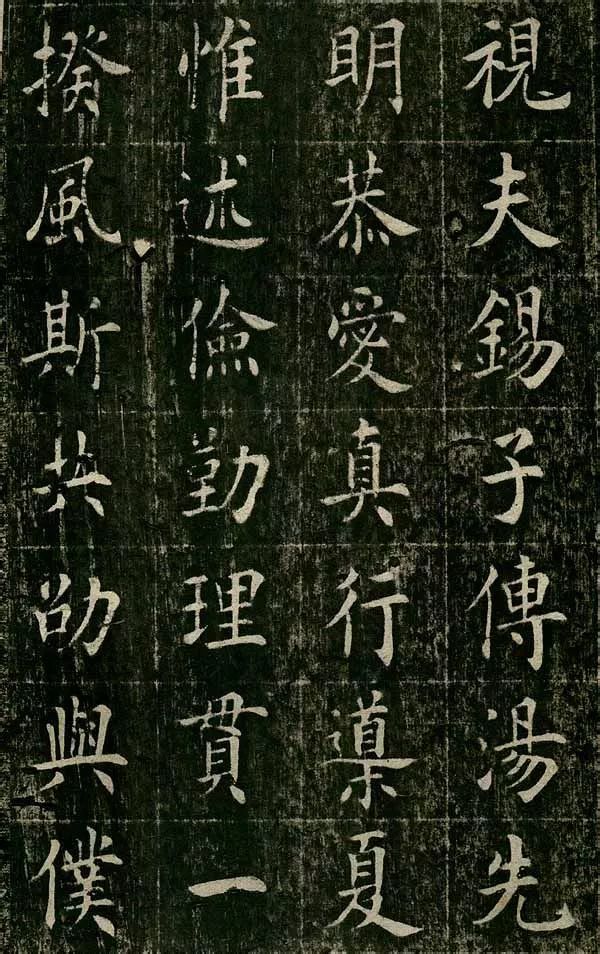 視夫錫子傳湯先
明恭愛真行導夏
惟述儉勤理貫一
揆風斯共劭與僕